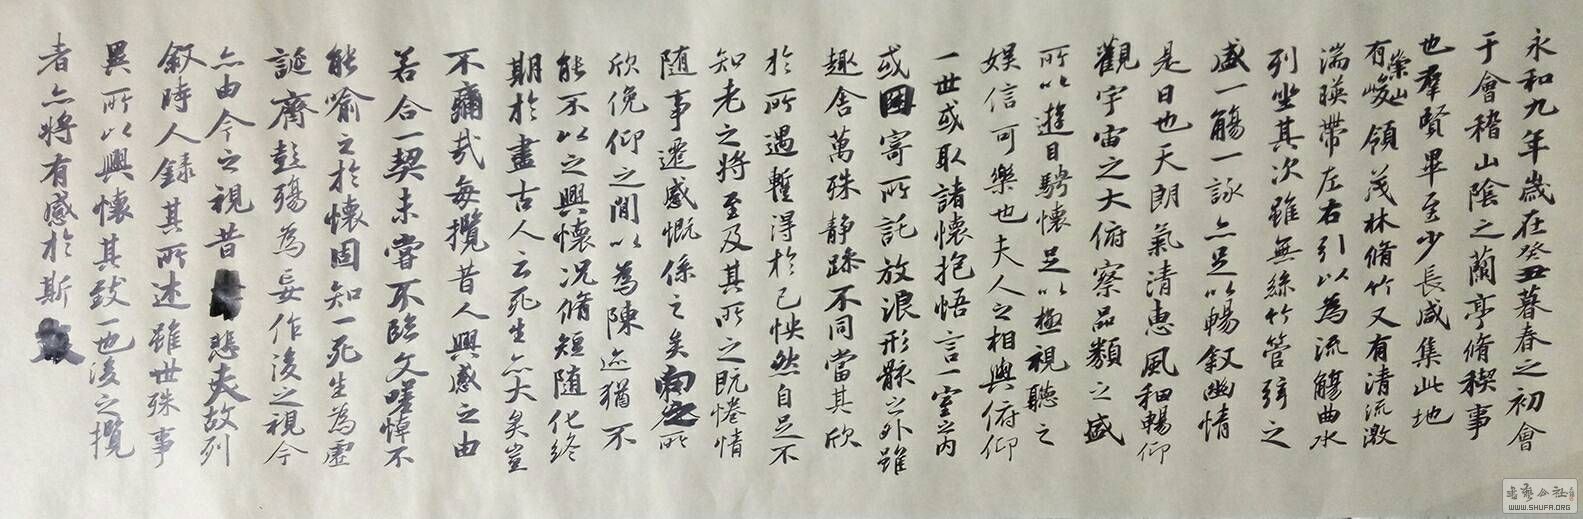 永和九年歲在癸丑暮春之初會
于會稽山陰之蘭亭脩稧事
也羣賢畢至少長咸集此地
有崇山峻領茂林脩竹又有清流激
湍暎帶左右引以為流觴曲水
列坐其次雖無絲竹管弦之
盛一觴一詠亦足以暢敘幽情
是日也天朗氣清惠風和暢仰
觀宇宙之大俯察品類之盛
所以遊目騁懷足以極視聽之
娛信可樂也夫人之相與俯仰
一世或取諸懷抱悟言一室之內
或因寄所託放浪形骸之外雖
趣舍萬殊靜躁不同當其欣
於所遇暫得於己怏然自足不
知老之將至及其所之既惓情
隨事遷感慨係之矣向之所
欣俛仰之閒以為陳迹猶不
能不以之興懷況脩短隨化終
期於盡古人云死生亦大矣豈
不痛哉每攬昔人興感之由
若合一契未嘗不臨文嗟悼不
能喻之於懷固知一死生為虛
誕齊彭殤為妄作後之視今
亦由今之視昔悲夫故列
敘時人錄其所述雖世殊事
異所以興懷其致一也後之攬
者亦將有感於斯
WWW.SHUFA.ORG